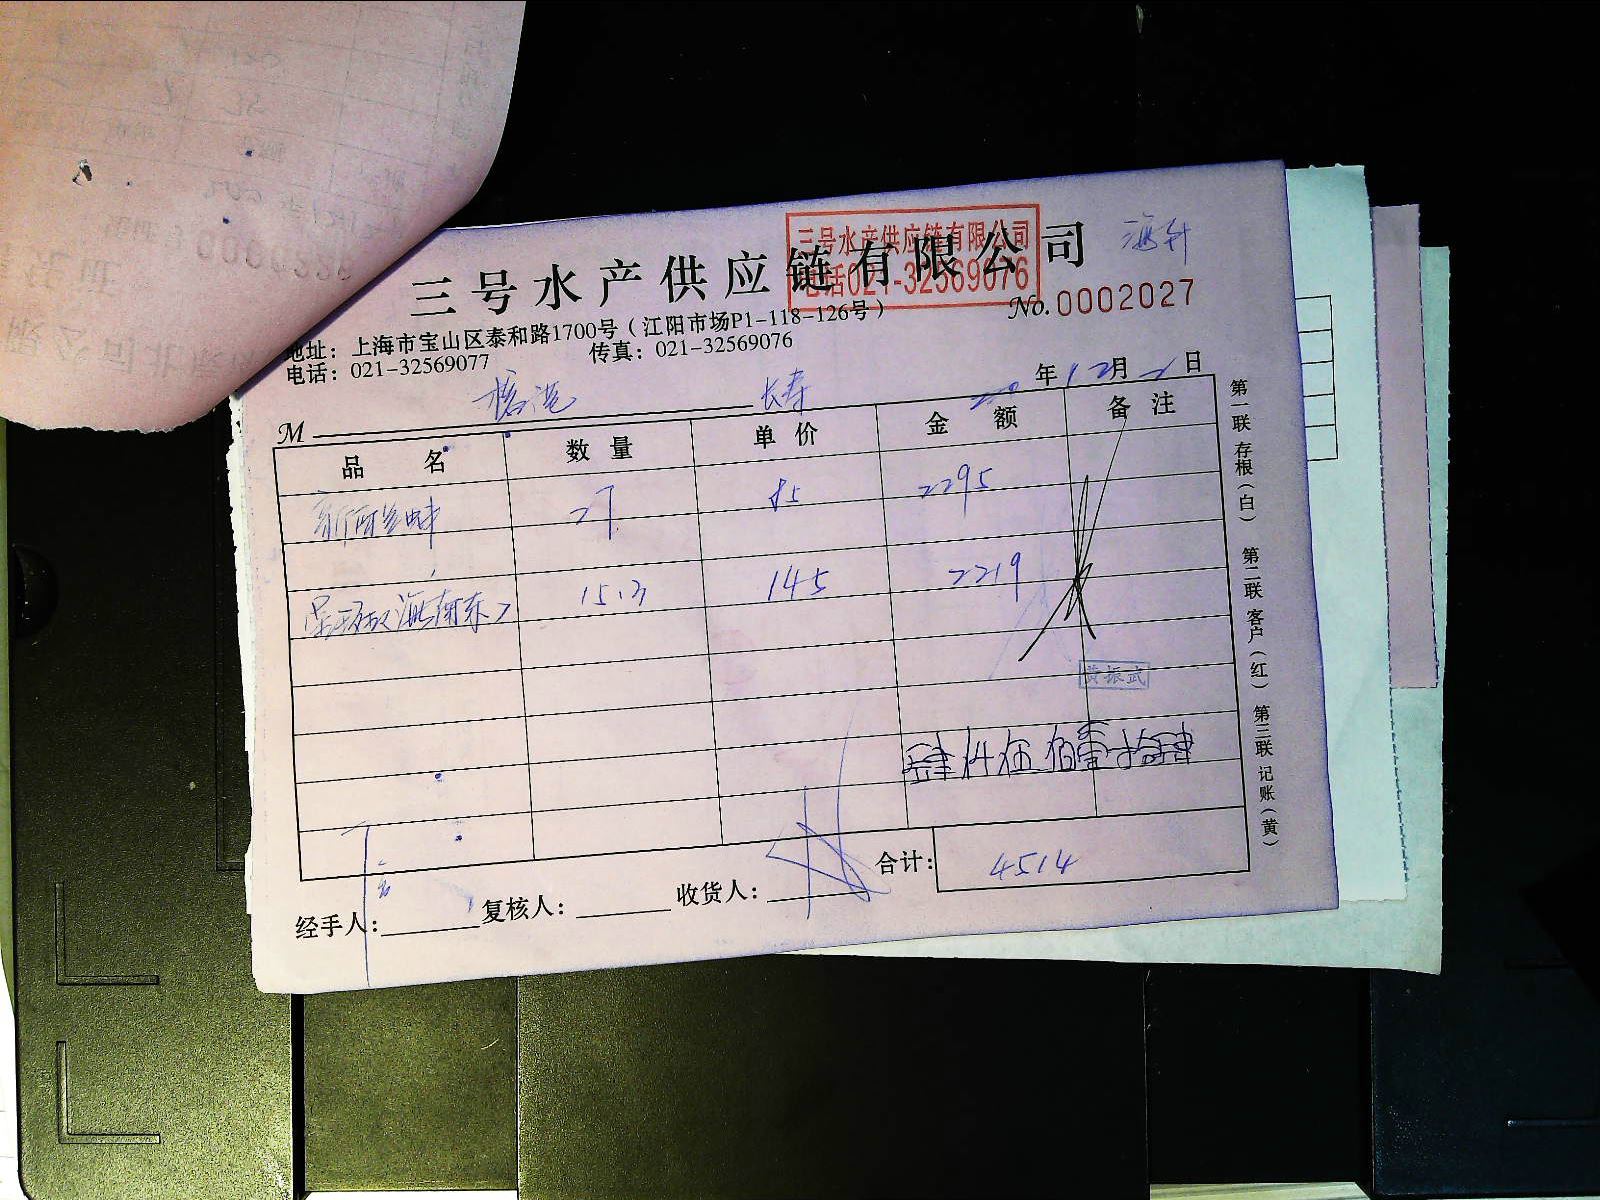 三号水产供应链有限公司
三号水产供应链有限公司
电话021-32569076
No. 0002027
地址：上海市宝山区泰和路1700号（江阳市场P1-118-126号）
电话：021-32569077 传真：021-32569076
M 长寿 20 年 12 月 2 日
品 名 数 量 单 价 金 额 备 注
27 85 2295
15.3 145 2219
黄振武
肆仟伍佰壹拾肆
合计： 4514
经手人： 复核人： 收货人：
第一联 存根（白） 第二联 客户（红） 第三联 记账（黄）